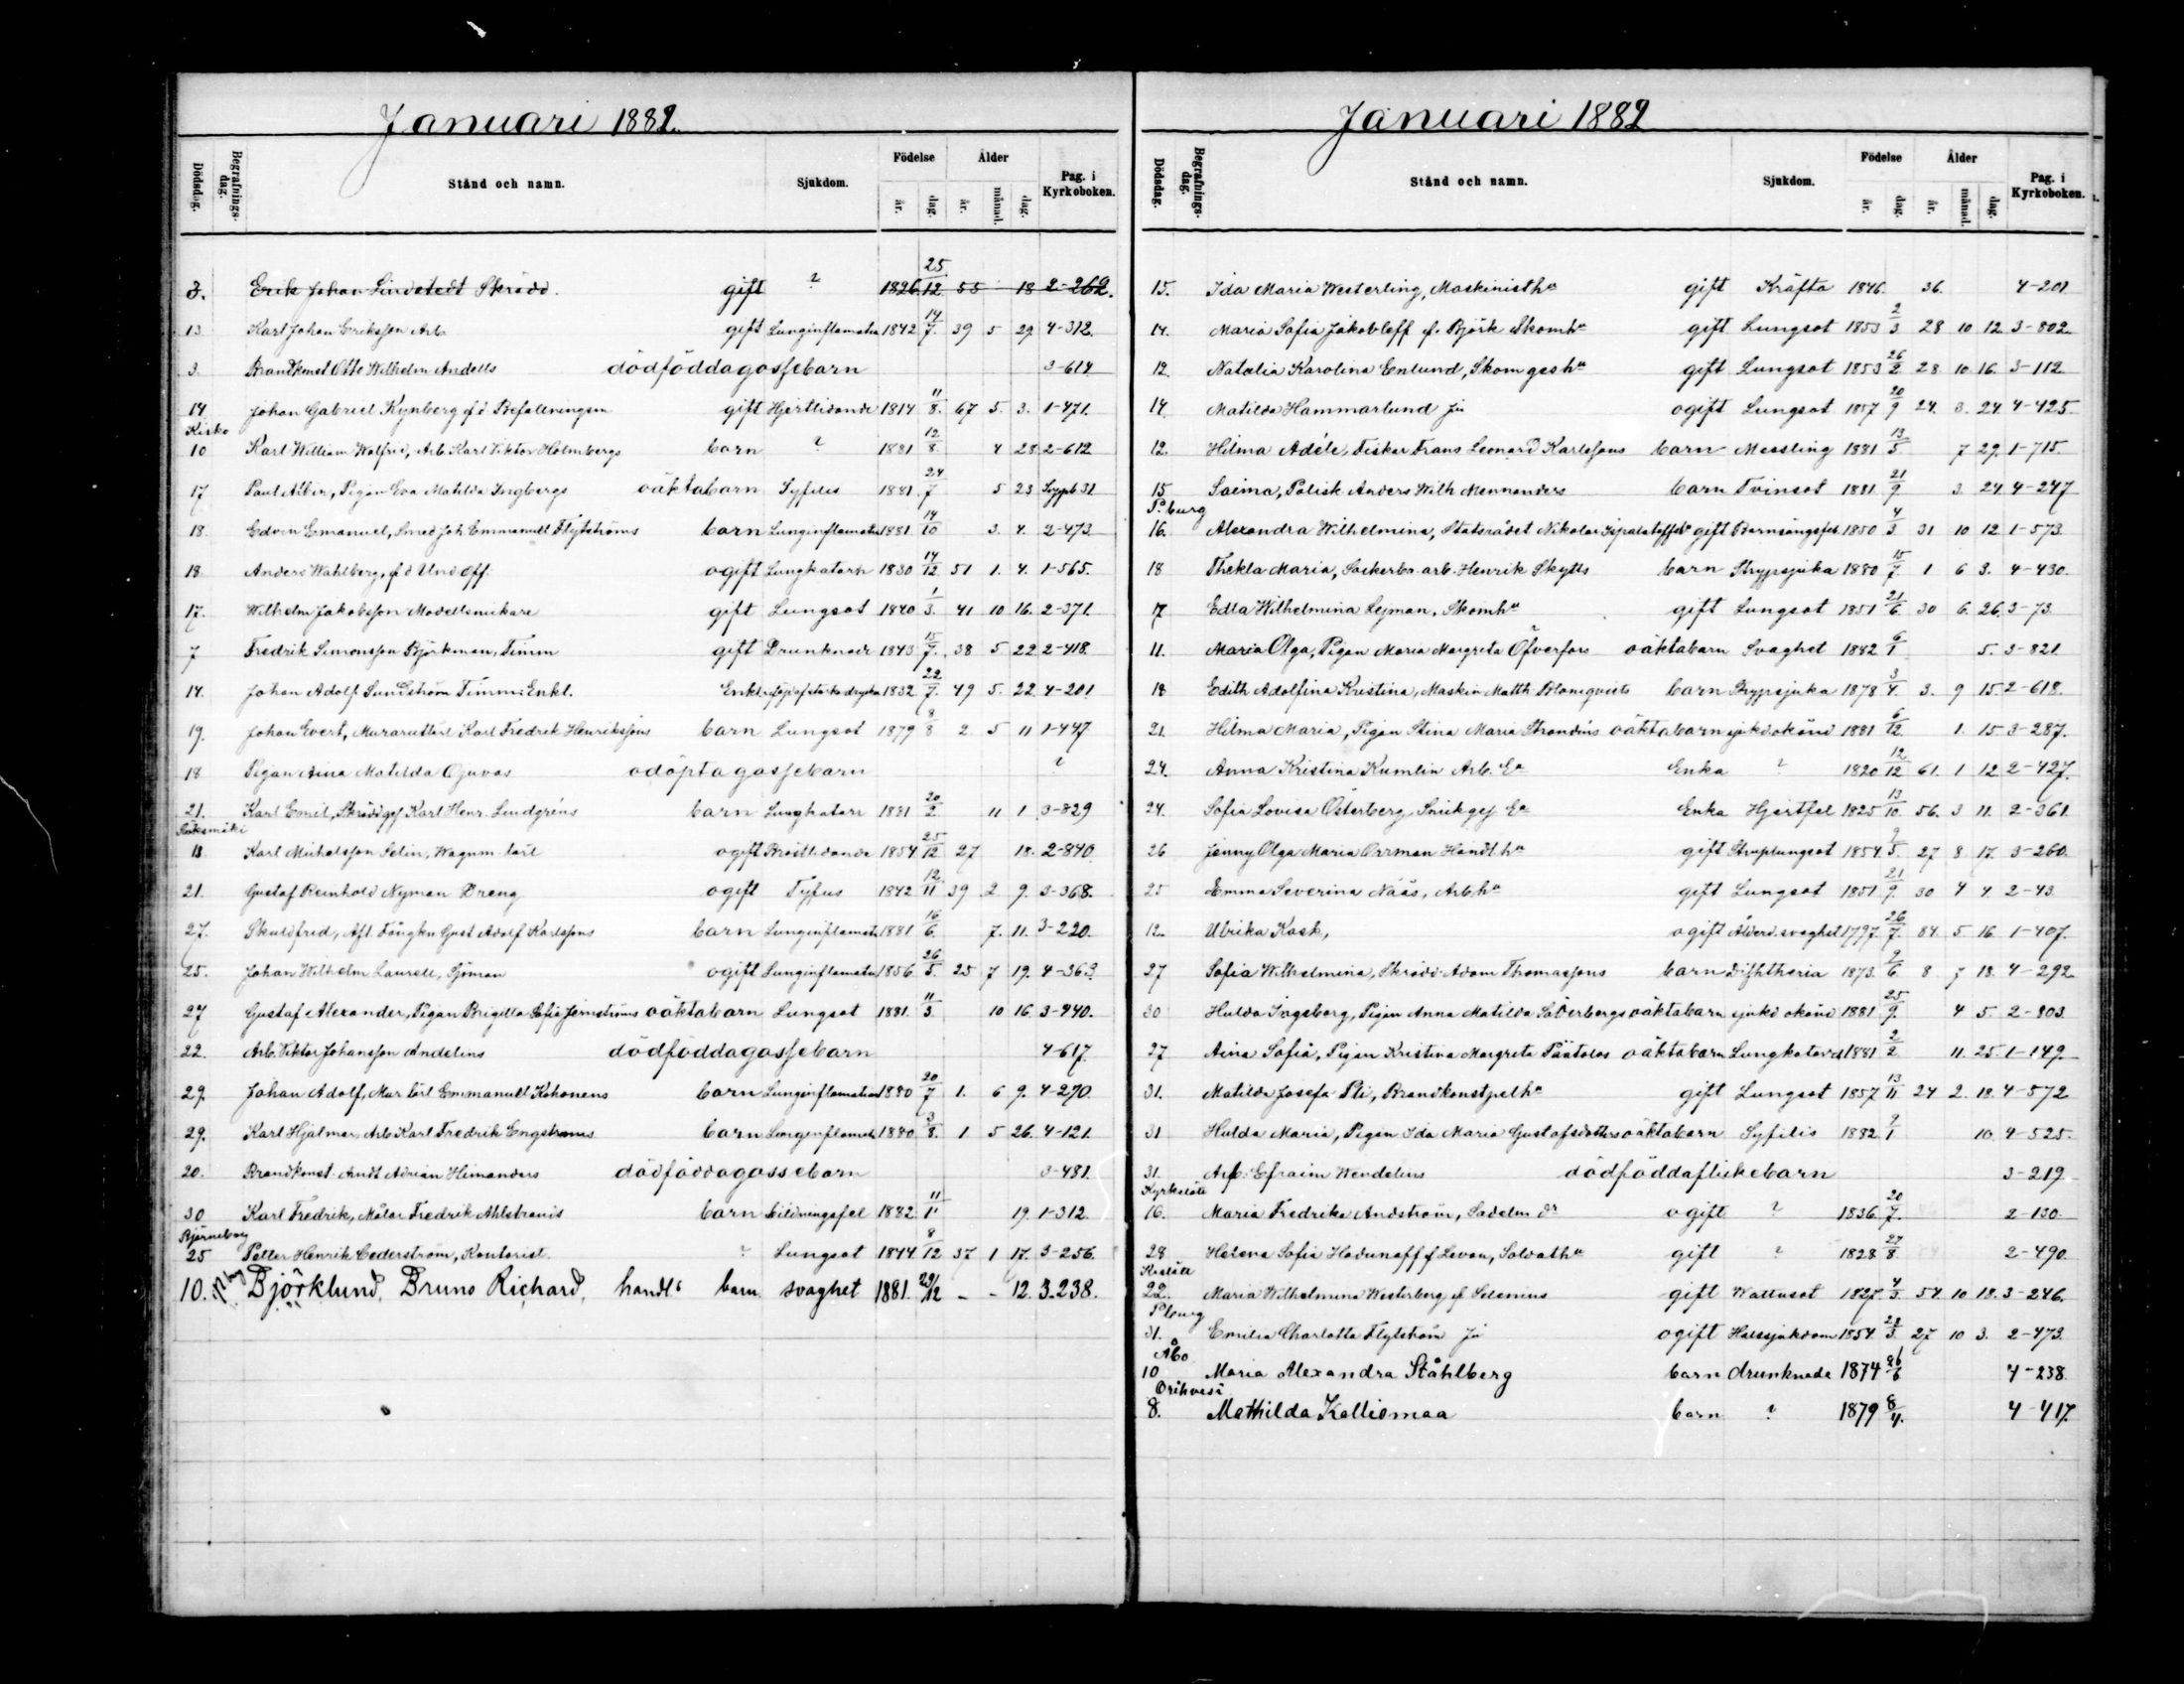 Januari 1882.
Dödsdag. Begrafningsdag. Stånd och namn. Sjukdom. Födelse år. dag. Ålder år. månad. dag. Pag. i Kyrkoboken.
3. Erik Johan Lindstedt Skrädd. gift ? 1826 25/12 55 18 2-262.
13 Karl Johan Eriksson Arb. gift Lunginflamation 1842 14/7. 39 5 29 4-312.
3. Brandkonst Otto Wilhelm Andells dödföddagossebarn 3-614
14 Johan Gabriel Kynberg f.d. Befallningsm gift Hjertlidande 1814 11/8. 67 5. 3. 1-471.
Kisko
10 Karl William Walfrid, Arb. Karl Viktor Holmbergs barn ? 1881 12/8. 4 28. 2-612
17 Paul Albin, Pigan Eva Matilda Ingbergs oäktabarn Syfilis 1881. 24/7 5 23 31
18. Edvin Emanuel, Smed Joh Emmanuel Flytströms barn Lunginflamation 1881. 14/10 3. 4. 2-473.
18. Anders Wahlberg, f.d. Und.off. ogift Lungkatarrh 1830 14/12 51 1. 4. 1-565.
17. Wilhelm Jakobsson Modellsnikare gift Lungsot 1840 1/3. 41 10 16. 2-371.
7 Fredrik Simonsson Björkman, Timm gift Drunknade 1843 15/7. 38 5 22 2-418.
14. Johan Adolf Sundström Timm. Enkl. Enkl. 1832 22/7. 49 5. 22 4-201
19. Johan Evert, Murarutlärl Karl Fredrik Henrikssons barn Lungsot 1879 8/8 2 5 11 1-447
18 Pigan Aina Matilda Ojuvas odöptagossebarn ?
21. Karl Emil, Skräddgs Karl Henr. Lindgréns barn Lungkatarr 1881 20/2 11 1 3-829
Sääksmäki
13. Karl Michelsson Selin, Wagnm. lärl ogift Bröstlidande 1854 25/12 27 18. 2-840.
21. Gustaf Reinhold Nyman Dreng ogift Tyfus 1842 12/11 39 2 9. 3-368.
27. Skuldfred, Gust Adolf Karlssons barn Lunginflamat. 1881 16/6. 7. 11. 3-220.
25. Johan Wilhelm Laurell, Sjöman ogift Lunginflamation 1856 26/5. 25 7 19. 4-363.
27 Gustaf Alexander, Pigan Brigitta Sofia Jernströms oäktabarn Lungsot 1881. 11/3. 10 16 3-940.
22. Arb. Viktor Johansson Andelins dödföddagossebarn 4-617.
29. Johan Adolf, Mur lärl Emmanuel Kohonens barn Lunginflamation 1880 20/7 1. 6 9. 4-270.
29. Karl Hjalmar, Arb Karl Fredrik Engstroms barn Lunginflamat. 1880 3/8. 1 5 26. 4-121.
20. Brandkonst. Adrian Heimanders dödföddagossebarn 3-481.
30 Karl Fredrik, Målar Fredrik Ahlstranis barn bildningsfel 1882. 11/1 19. 1-312.
Björneborg
25 Petter Henrik Cederström, Kontorist. ? Lungsot 1844 8/12 37 1 17. 3-256.
10. Björklund, Bruno Richard, handls barn svaghet 1881. 29/12 - - 12. 3.238.
Januari 1882
Dödsdag. Begrafningsdag. Stånd och namn. Sjukdom. Födelse år. dag. Ålder år. månad. dag. Pag. i Kyrkoboken.
15. Ida Maria Westerling, Maskinisth:a gift Kräfta 1846. 36. 4-201
14. Maria Sofia Jakobleff f. Björk Skomh:a gift Lungsot 1853 2/3 28 10 12. 3-802
12. Natalia Karolina Enlund, Skomgesh:a gift Lungsot 1853 26/2 28 10 16. 3-112
14. Matilda Hammarlund ju ogift Lungsot 1857 20/9 24. 3. 24. 4-425.
12. Hilma Adéle, Fiskar Frans Leonard Karlssons barn Messling 1881 13/5. 7 29. 1-715.
15 Saima, Polisk Anders Wilh Mennanders barn Tvinsot 1881 21/9. 3. 24. 4-247
P:burg
16. Alexandra Wilhelmina, Statsrådet Nikolai gift Barnsängsfeb. 1850 4/3. 31 10 12. 1-573.
18 Thekla Maria, Sockerbr. arb. Henrik Skytts barn Strypsjuka 1880 15/7. 1 6 3. 4-430.
17 Edla Wilhelmina Lejman, Skomh:a gift Lungsot 1851 21/6. 30 6. 26. 3-73.
11. Maria Olga, Pigan Maria Margreta Öfverfors oäktabarn Svaghet 1882 6/1 5. 3-821.
18 Edith Adolfina Kristina, Maskin Matth. Blomqvists barn Strypsjuka 1878 3/4. 3. 9 15. 2-618.
21. Hilma Maria, Pigan Stina Maria Strandéns oäktabarn sjukd.okänd 1881 6/12. 1. 15. 3-287.
24. Anna Kristina Kumlin Arb. E:a Enka ? 1820 12/12 61. 1 12 2-427.
24. Sofia Lovisa Österberg, Snickgs E:a Enka Hjertfel 1825 13/10. 56. 3 11. 2-361.
26 Jenny Olga Maria Orrman Handl.h:a gift Struplungsot 1854. 9/5. 27 8 17. 3-260.
25 Emma Severina Nääs, Arb.h:a gift Lungsot 1851 21/9. 30 4 4. 2-43.
12. Ulrika Kask, ogift Ålderd.svaghet 1797. 26/7. 84. 5 16. 1-407.
27 Sofia Wilhelmina, Skrädd. Adam Thomassons barn Difhtheria 1873. 9/6. 8 7 18. 4-292
30 Hulda Ingeborg, Pigan Anna Matilda Söderbergs oäktabarn sjukd okänd 1881 25/9. 4 5. 2-803.
27 Aina Sofia, Pigan Kristina Margreta Päätalos oäktabarn Lungkatarrh 1881 2/2 11. 25. 1-149.
31. Matilda Josefa Pli, Brandkonstpelh:a gift Lungsot 1857 13/11 24 2. 18. 4-572
31 Hulda Maria, Pigan Ida Maria Gustafsdotters oäktabarn Syfilis 1882. 9/1. 10. 4-525.
31. Arb. Efraim Wendelins dödföddaflickebarn 3-219
Kyrkslätt
16. Maria Fredrika Andström, Sadelm dr ogift ? 1836. 20/7. 2-130.
28 Helena Sofia Hodunoff f. Levon, Soldath:a gift ? 1828 27/8. 2-490.
22. Maria Wilhelmina Westerberg f. Selenius gift Wattusot 1827. 4/3. 54. 10 18. 3-246.
P:burg
31. Emilia Charlotta Flytström ju ogift Halssjukdom 1854. 28/3. 27 10 3. 2-473.
Åbo
10 Maria Alexandra Ståhlberg barn drunknade 1874 26/6 4-238.
Orihvesi
8. Mathilda Kalliomaa barn ? 1879 8/4. 4-417.